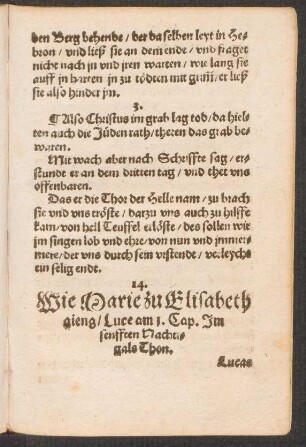 den Berg behende / der da selben leyt in He-
bron / vnd ließ sie an dem ende / vnd fraget
nicht nach jn vnd jren warten / wie lang sie
auff jn harren jn zu tödten mit gunst / er ließ
sie also hinder jm.
3.
¶ Also Christus im grab lag tod / da hiel-
ten auch die Jüden rath / theten das grab be-
waren.
Mit wach aber nach Schriffte sag / er-
stunde er an dem dritten tag / vnd thet vns
offenbaren.
Das er die Thor der Helle nam / zu brach
sie vnd vns tröste / darzu vns auch zu hilffe
kam / von hell Teuffel erlöste / des sollen wir
jm singen lob vnd ehre / von nun vnd jmmer-
mere / der vns durch sein vrstende / verleyhe
ein selig ende.
14.
Wie Marie zu Elisabeth
gieng / Luce am 1. Cap. Im
senfften Nachti-
gals Thon.
Lucas